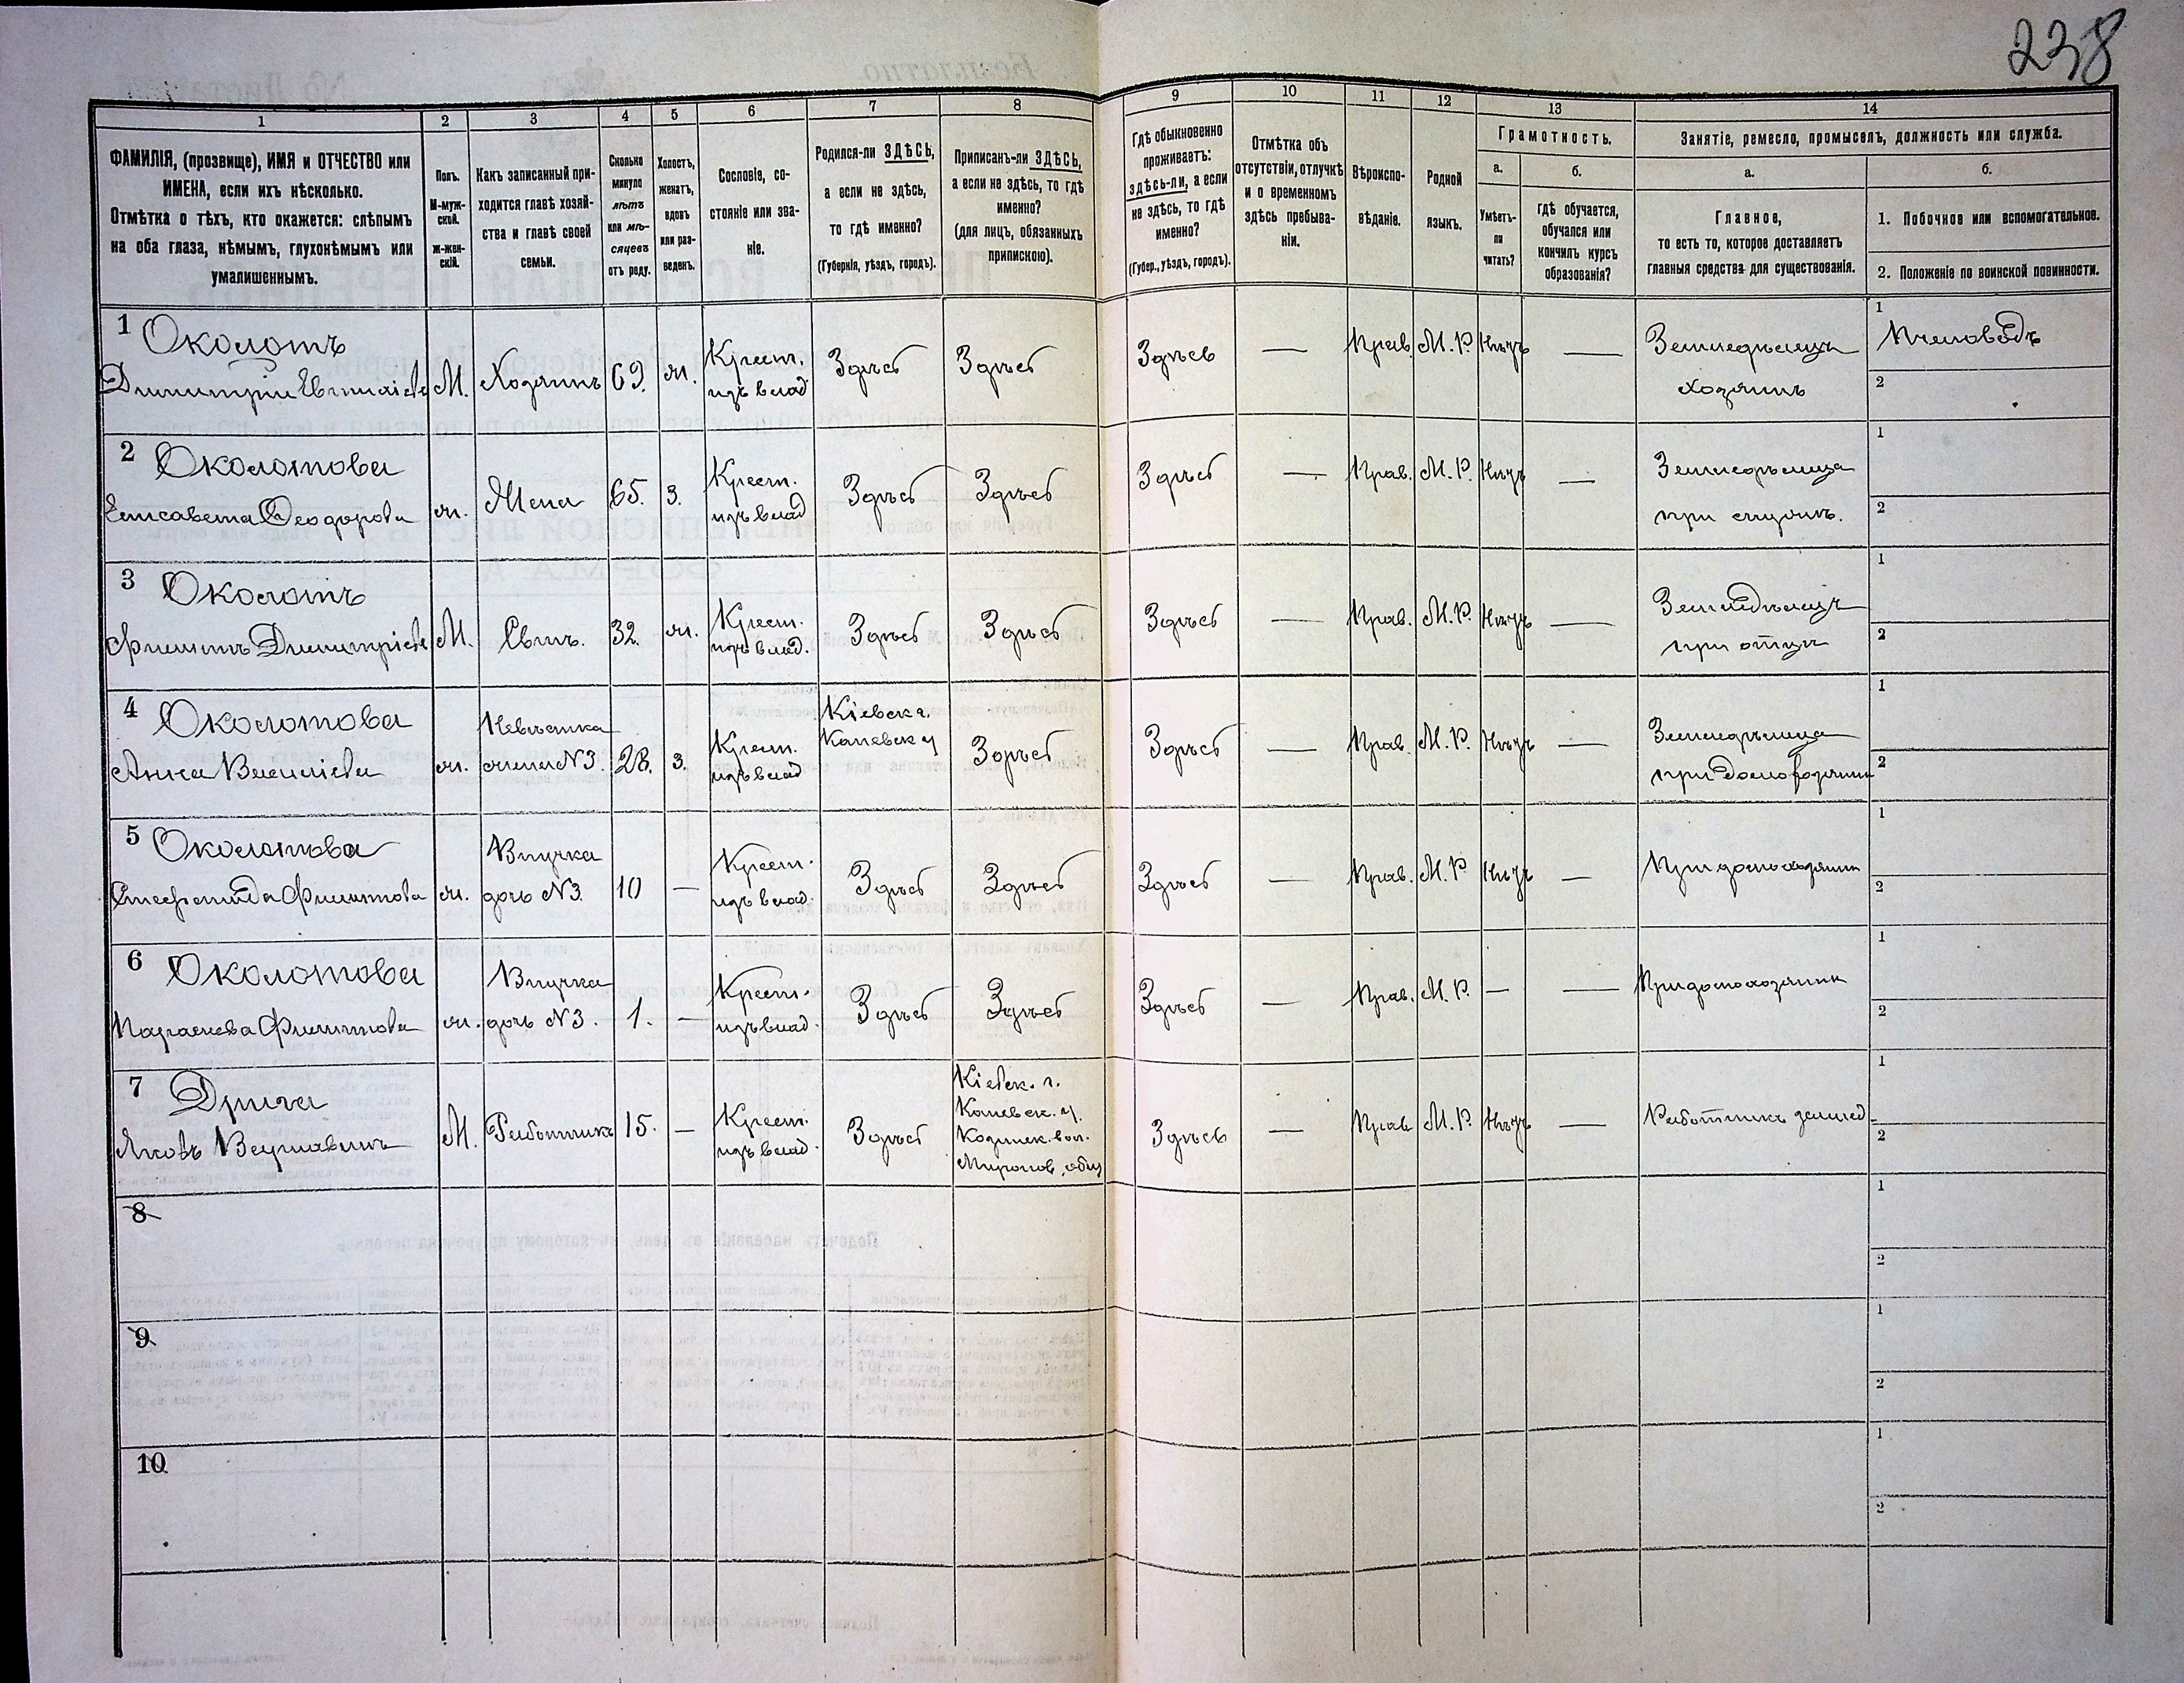 238
1
2
3
4
5
6
7
8
9
10
11
12
13
14
ФАМИЛІЯ, (прозвище), ИМЯ и ОТЧЕСТВО или
ИМЕНА, если ихъ нѣсколько.
Отмѣтка о тѣхъ, кто окажется: слѣпымъ
на оба глаза, нѣмымъ, глухонѣмымъ или
умалишеннымъ.
Полъ.
М-муж-
ской.
Ж-жен-
скій.
Какъ записанный при-
ходится главѣ хозяй-
ства и главѣ своей
семьи.
Сколько
минуло
лѣтъ
или мѣ-
сяцевъ
отъ роду.
Холостъ,
женатъ,
вдовъ
или раз-
веденъ.
Сословіе, со-
стояніе или зва-
ніе.
Родился-ли ЗДѢСЬ,
а если не здѣсь,
то гдѣ именно?
(Губернія, уѣздъ, городъ).
Приписанъ-ли ЗДѢСЬ,
а если не здѣсь, то гдѣ
именно?
(для лицъ, обязанныхъ
припискою).
Гдѣ обыкновенно
проживаетъ:
здѣсь-ли, а если
не здѣсь, то гдѣ
именно?
(Губер., уѣздъ, городъ).
Отмѣтка объ
отсутствіи, отлучкѣ
и о временномъ
здѣсь пребыва-
ніи.
Вѣроиспо-
вѣданіе.
Родной
языкъ.
Грамотность.
а.
Умѣетъ-
ли
читать?
б.
гдѣ обучается,
обучался или
кончилъ курсъ
образованія?
Занятіе, ремесло, промыселъ, должность или служба.
а.
Главное,
то есть то, которое доставляетъ
главныя средства для существованія.
б.
1. Побочное или вспомогательное.
2. Положеніе по воинской повинности.
1 Околотъ
Димитрій Евтихіевъ
М.
Хозяинъ
69.
ж.
Крест.
изъ влад
Здѣсь
Здѣсь
Здѣсь
—
Прав.
М.Р.
Нѣтъ
—
Земледѣлецъ
хозяинъ
1
Пчеловодъ
2
2 Околотова
Елисавета Феодорова
ж.
Жена
65.
з.
Крест.
изъ влад
Здѣсь
Здѣсь
Здѣсь
—
Прав.
М.Р.
Нѣтъ
—
Земледѣлица
при
1
2
3 Околотъ
Филиппъ Димитріевъ
М.
Сынъ.
32.
ж.
Крест.
изъ влад.
Здѣсь
Здѣсь
Здѣсь
—
Прав.
М.Р.
Нѣтъ
—
Земледѣлецъ
при отцѣ
1
2
4 Околотова
Анна Василіева
ж.
Невѣстка
жена N3.
28.
з.
Крест.
изъ влад
Кіевск г.
Каневск у
Здѣсь
Здѣсь
—
Прав.
М.Р.
Нѣтъ
—
Земледѣлица
при Домохозяинѣ
1
2
5 Околотова
Стефанида Филиппова
ж.
Внучка
дочь N3.
10
—
Крест.
изъ влад.
Здѣсь
Здѣсь
Здѣсь
—
Прав.
М.Р
Нѣтъ
—
При домохозяинѣ
1
2
6 Околотова
Параскева Филиппова
ж.
Внучка
дочь N3.
1.
—
Крест.
изъ влад.
Здѣсь
Здѣсь
Здѣсь
—
Прав.
М.Р.
—
—
При домохозяинѣ
1
2
7 Дрига
Яковъ
М.
Работникъ
15.
—
Крест.
изъ влад.
Здѣсь
Кіевск. г.
Каневск. у.
Козинск. вол.
Здѣсь
—
Прав
М.Р.
Нѣтъ
—
Работникъ землед
1
2
8
1
2
9
1
2
10
1
2